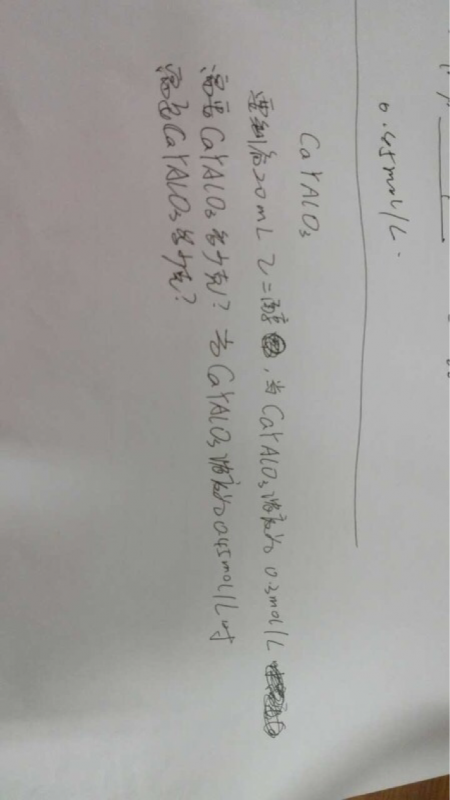 0.45mol/L.
CaYAlO3
要制备20mL 乙二醇, 当CaYAlO3浓度为0.3mol/L
需要CaYAlO3多少克? 当CaYAlO3浓度为0.45mol/L时
需要CaYAlO3多少克?